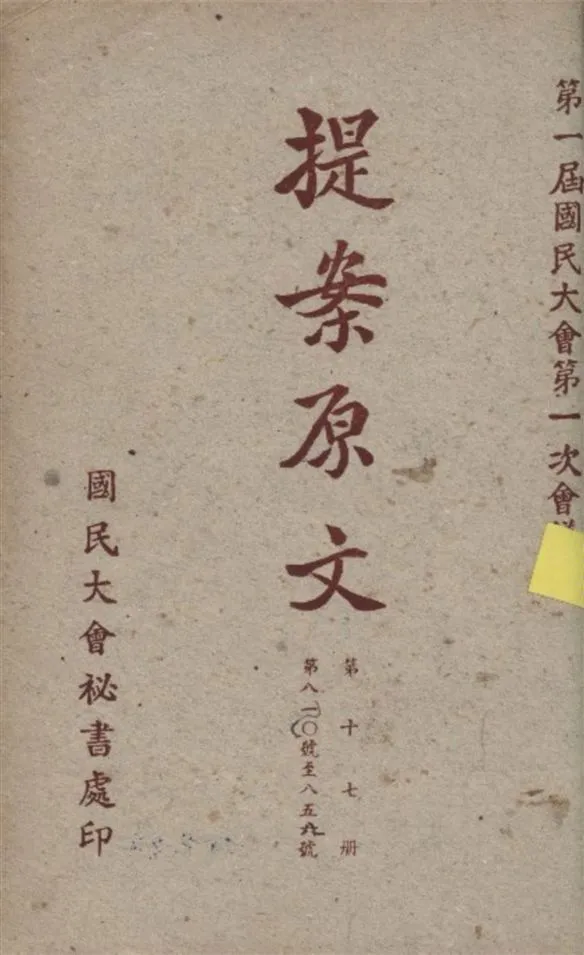 第一屆國民大會第一次會
提案原文
第十七册
第八一〇號至八五九號
國民大會祕書處印